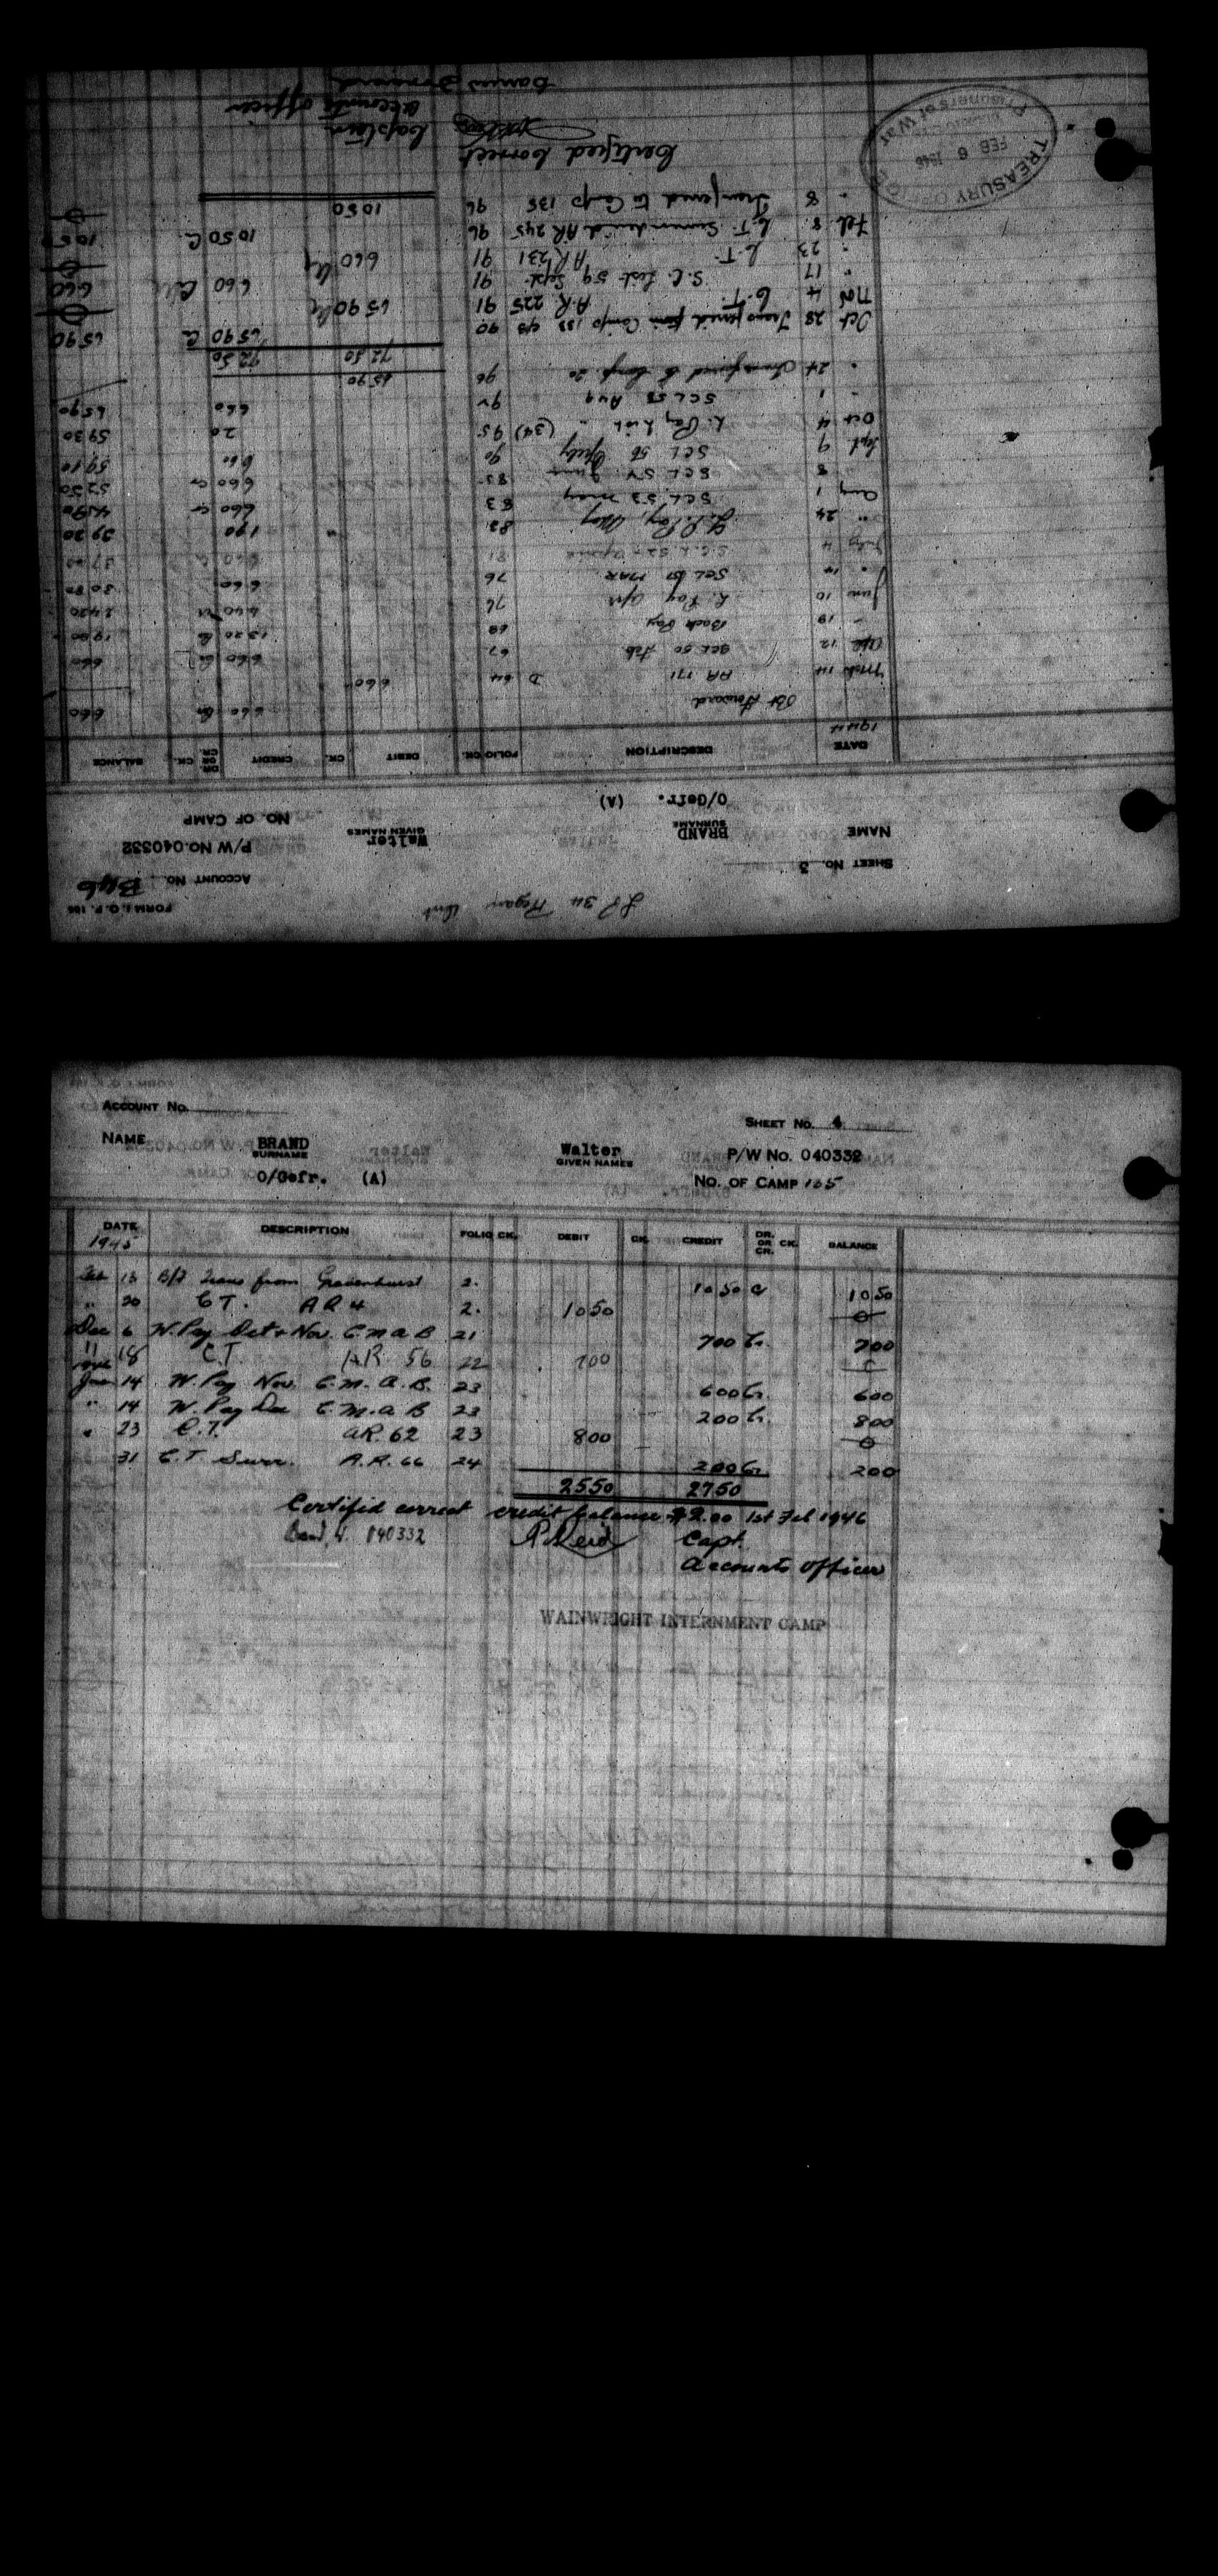 FORM I.O.P. 186
ACCOUNT NO. B46
SHEET NO. 3
P/W No. 040332
NAME BRAND Walter
SURNAME GIVEN NAMES
NO. OF CAMP
O/Gefr. (A)
DATE DESCRIPTION FOLIO CK. DEBIT CK. CREDIT DR. OR CR. CK. BALANCE
1944
Bt Forward 660 Cr 660
Mch 14 AR 171 D 64 660
Apr 12 SCL 50 Feb 67 660 Cr 660
" 19 Back Pay 68 1320 Cr 1980
Jun 10 L. Pay Apr 76 440 Cr 2420
" 14 SCL 51 MAR 76 660 3080
July 4 S.C.L. 52 April 81 660 Cr 3740
" 24 Pay, May 82 190 3930
Aug 1 SCL 53 May 83 660 Cr 4590
8 SCL 54 June 85 660 Cr 5250
Sept 9 SCL 56 July 90 660 5910
Oct 4 L. Pay List (34) 95 20 5930
" 1 SCL 58 Aug 97 660 6590
" 24 Transferred to Camp 20 96 6590
7250 7250
Oct 28 Transferred from Camp 133 90 6590 Cr 6590
Nov 4 C.T. A.R. 225 91 6590
" 17 S.C. List 59 Sept. 91 660 660
" 23 C.T. AR 231 91 660
Feb 8 C.T. Surrendered AR 245 96 1050 Cr 1050
" 8 Transferred to Camp 135 96 1050
Certified Correct
Captain
Accounts Officer
TREASURY
FEB 6 1946
Prisoners of War
ACCOUNT NO.
SHEET NO. 4
NAME BRAND Walter P/W No. 040332
SURNAME GIVEN NAMES
O/Gefr. (A) NO. OF CAMP 135
DATE DESCRIPTION FOLIO CK. DEBIT CK. CREDIT DR. OR CR. CK. BALANCE
1945
Feb 13 B/f Trans from Gravenhurst 2. 1050 Cr 1050
" 20 C T. A R 4 2. 1050 0
Dec 6 W. Pay Oct & Nov. C.M.A.B 21 700 Cr. 700
" 18 C.T. A.R. 56 22 700 0
Jan 14 W. Pay Nov. C.M.A.B. 23 600 Cr. 600
" 14 W. Pay Dec C.M.A B 23 200 Cr. 800
" 23 C.T. A.R. 62 23 800 0
31 C.T Surr. A.R. 66 24 200 Cr. 200
2550 2750
Certified correct credit balance $2.00 1st Feb 1946
Brand, W. 040332 Capt.
Accounts Officer
WAINWRIGHT INTERNMENT CAMP